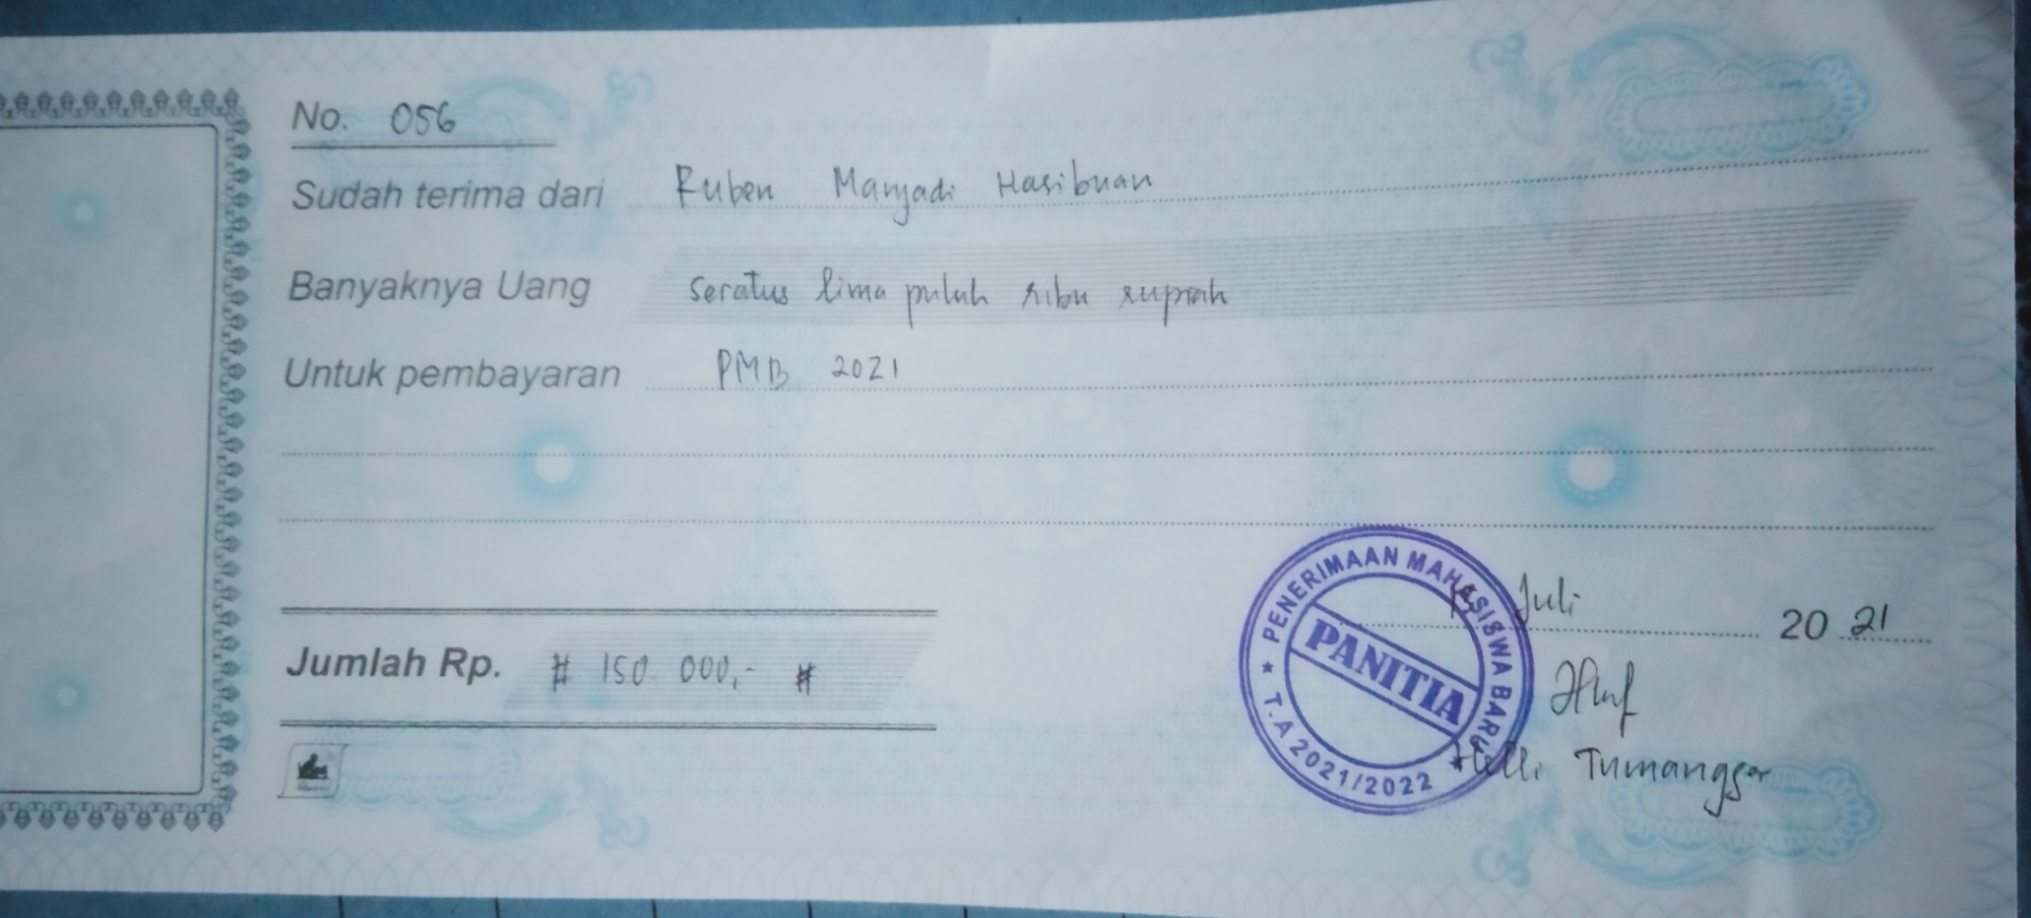 No. 056
Sudah terima dari Ruben Manjadi Hasibuan
Banyaknya Uang seratus lima puluh ribu rupiah
Untuk pembayaran PMB 2021
Juli 20 21
Jumlah Rp. # 150.000,- #
★ PENERIMAAN MAHASISWA BARU ★
PANITIA
T.A 2021/2022
Tumanggor